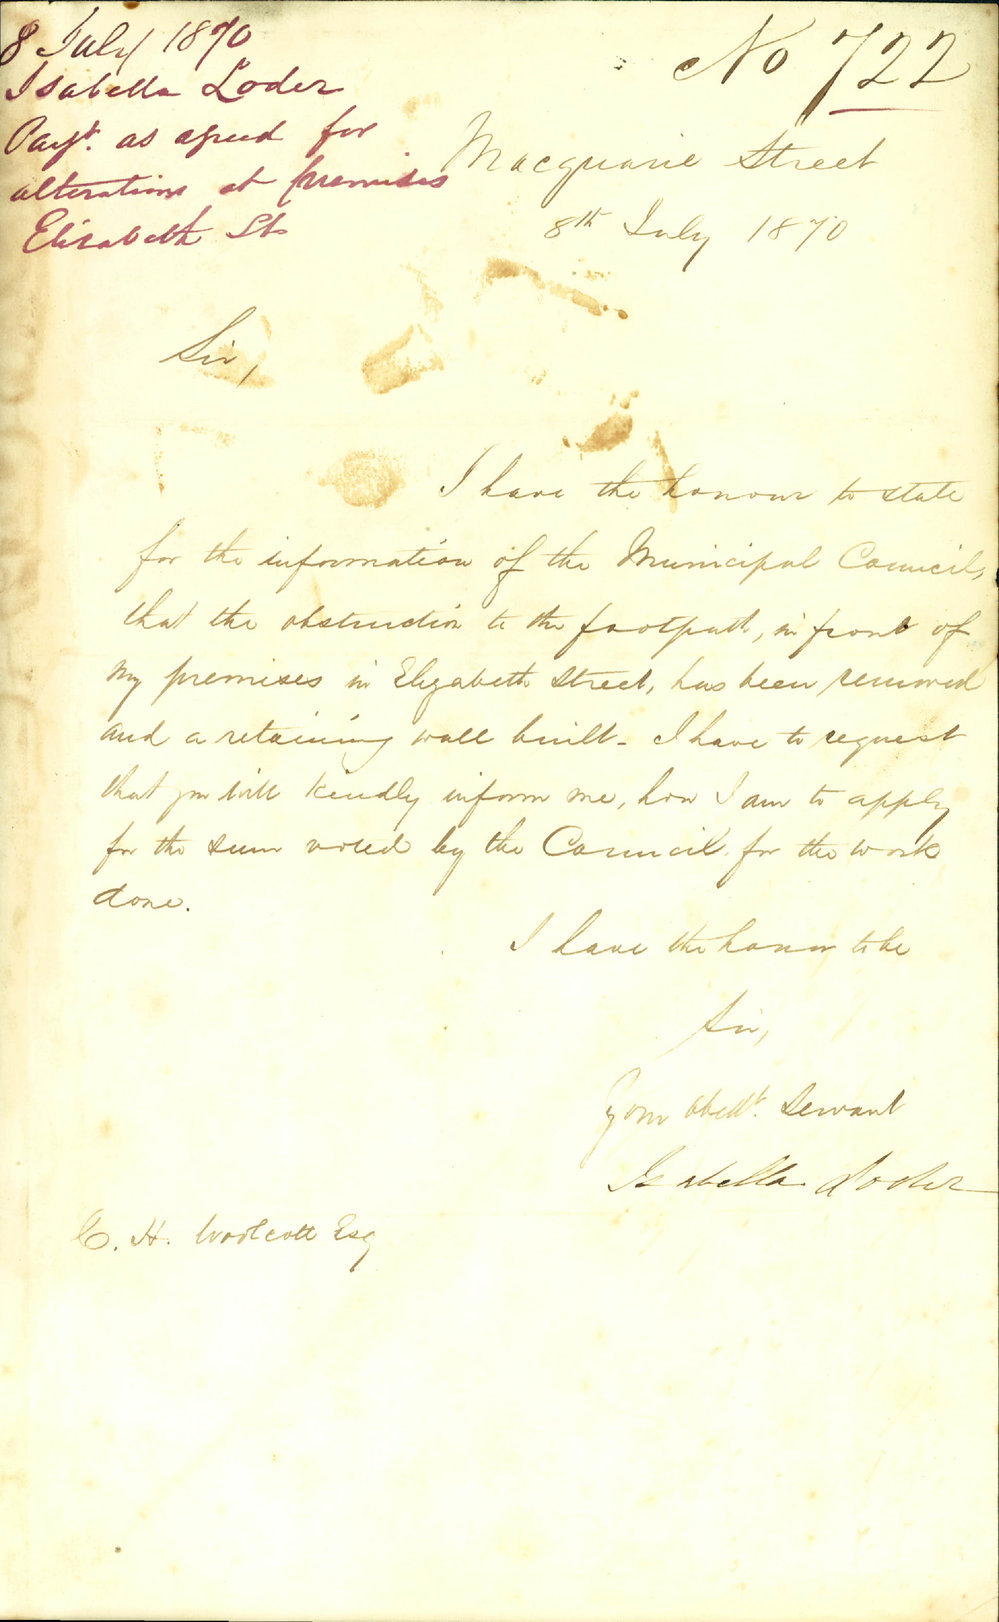 8 July 1870
Isabella Loder
Payt. as agreed for
alterations at premises
Elizabeth St
No 722
Macquarie Street
8th July 1870
Sir,
I have the honour to state
for the information of the Municipal Council,
that the obstruction to the footpath, in front of
my premises in Elizabeth Street, has been removed
and a retaining wall built - I have to request
that you will kindly inform me, how I am to apply
for the sum voted by the Council for the work
done.
I have the honor to be
Sir,
Your obedt. Servant
Isabella Loder
C. H. Woolcott Esq